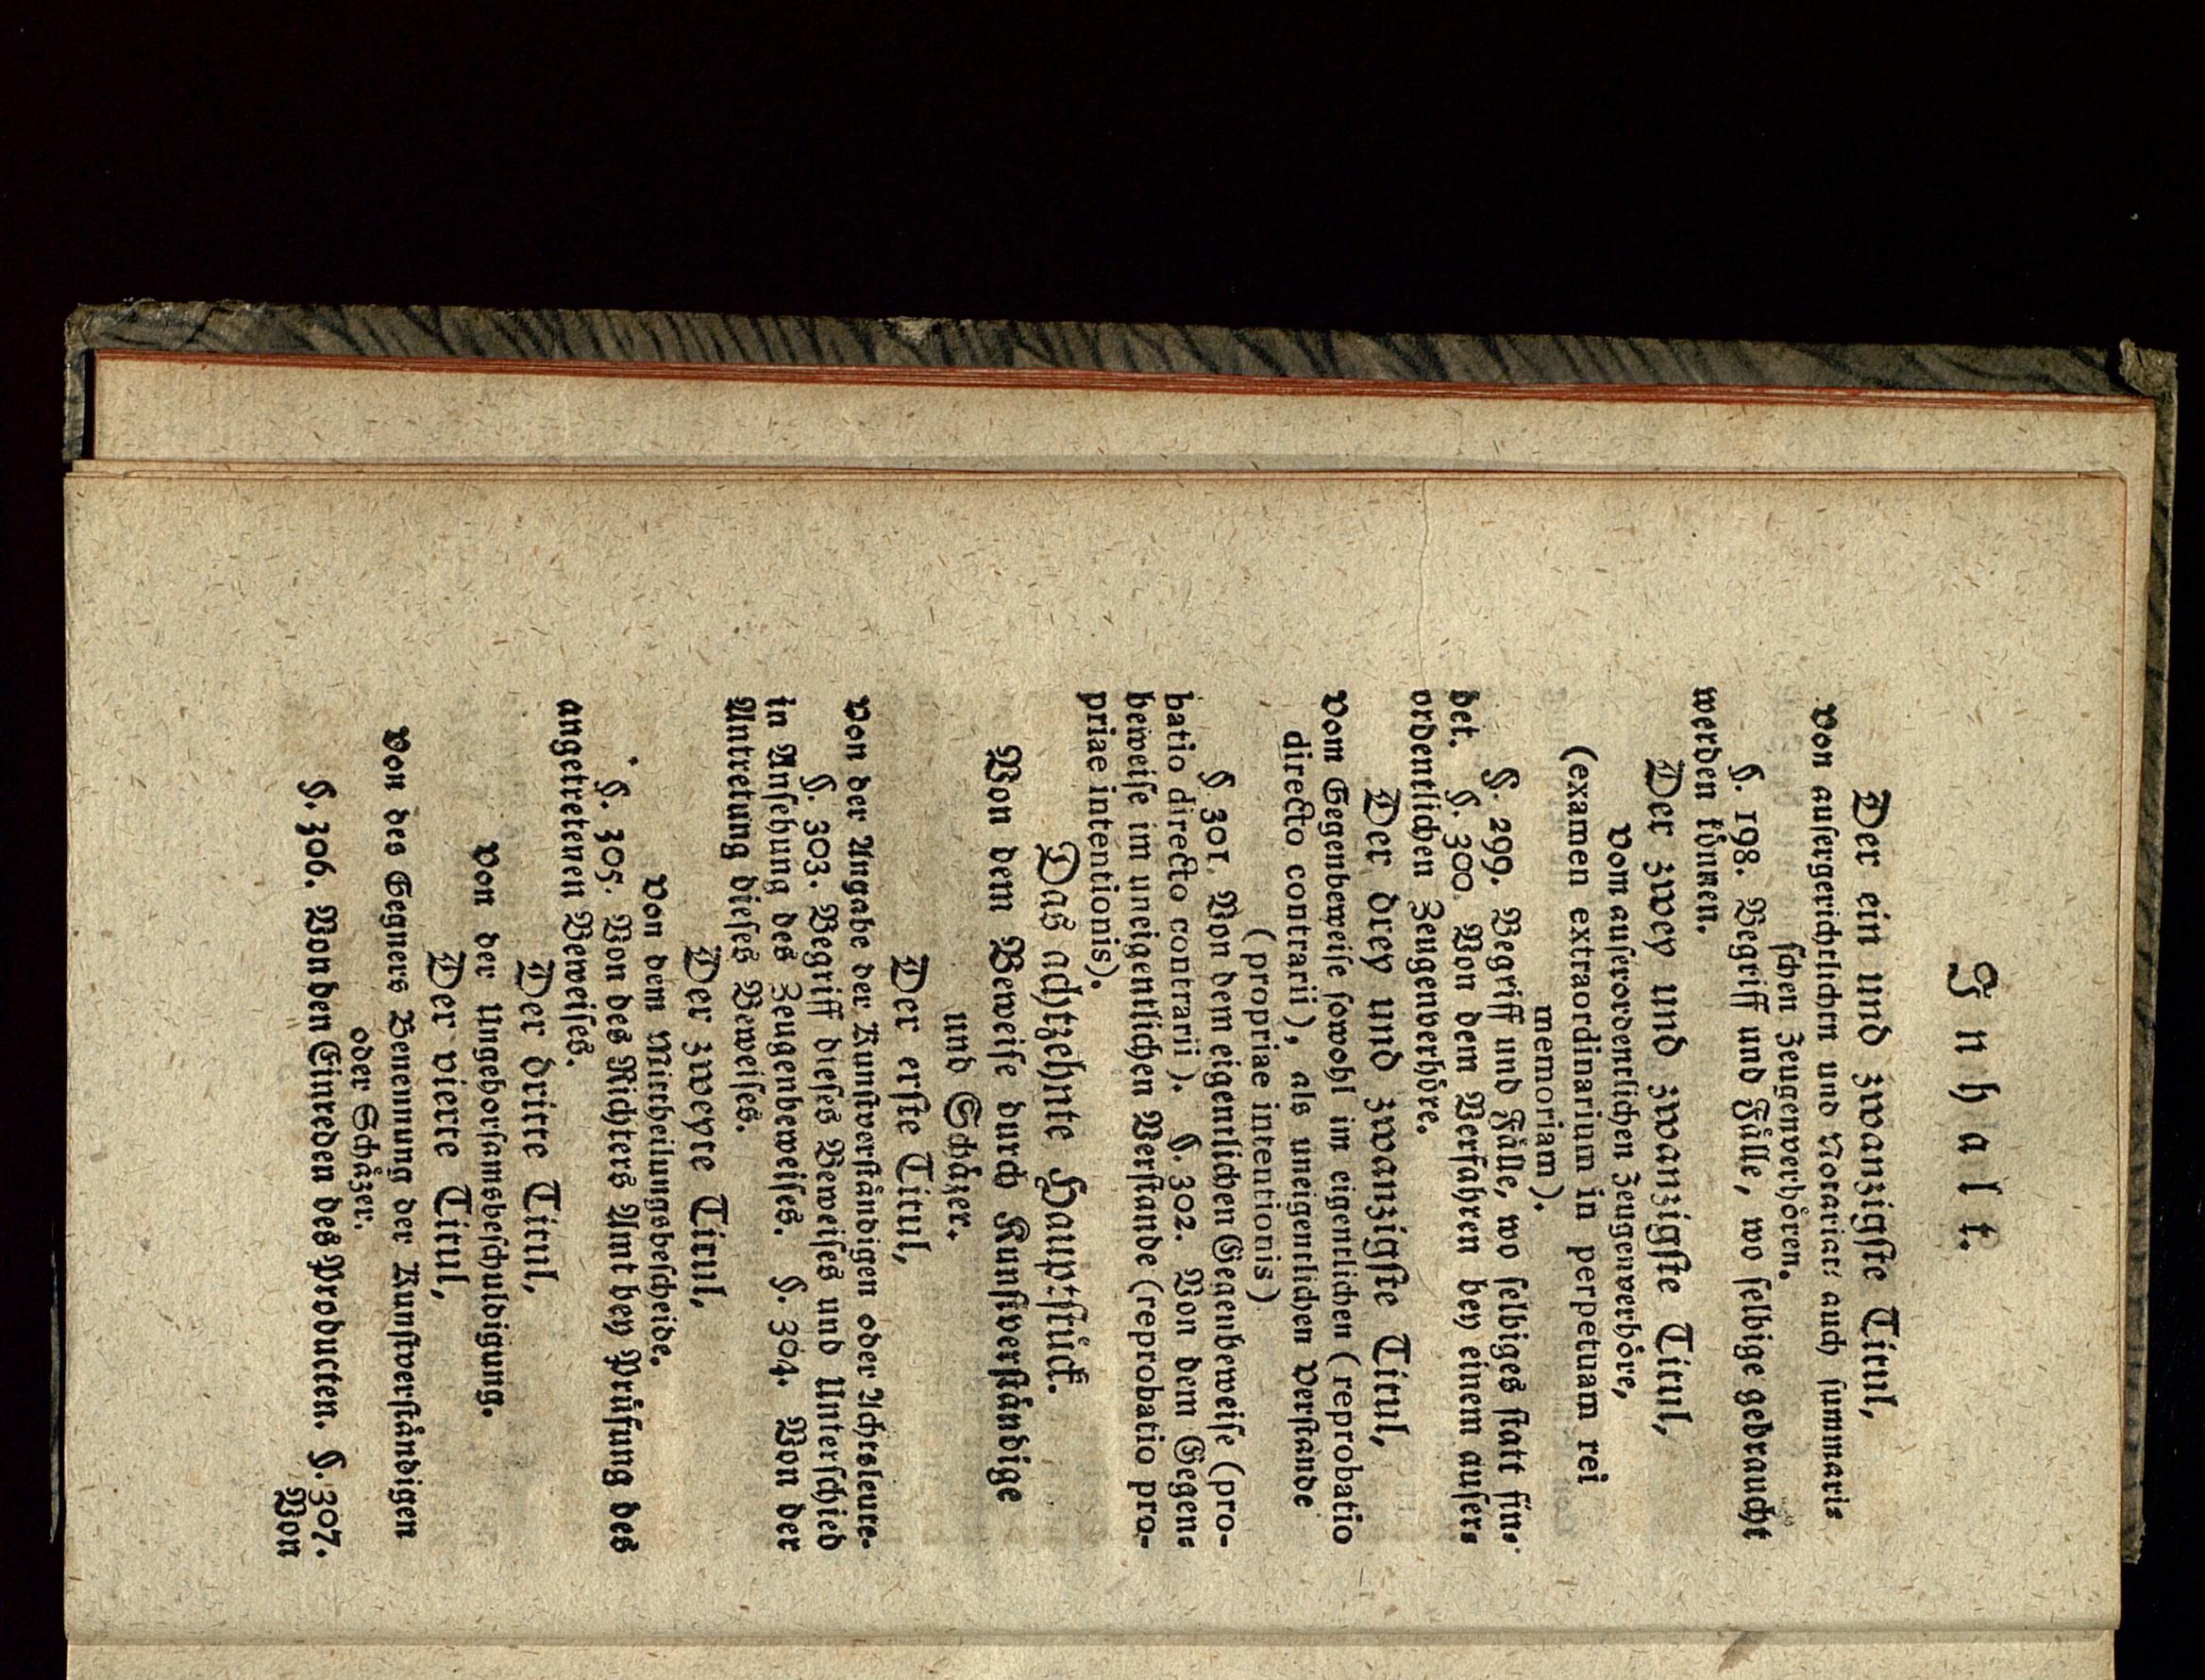 Inhalt.
Der ein und zwanzigste Titul,
Von ausergerichtlichen und Notariat- auch summari-
schen Zeugenverhören.
§. 198. Begriff und Fälle, wo selbige gebraucht
werden können.
Der zwey und zwanzigste Titul,
Vom auserordentlichen Zeugenverhöre,
(examen extraordinarium in perpetuam rei
memoriam).
§. 299. Begriff und Fälle, wo selbiges statt fin-
det. §. 300. Von dem Verfahren bey einem auser-
ordentlichen Zeugenverhöre.
Der drey und zwanzigste Titul,
Vom Gegenbeweise sowohl im eigentlichen (reprobatio
directo contrarii), als uneigentlichen Verstande
(propriae intentionis)
§ 301. Von dem eigentlichen Gegenbeweise (pro-
batio directo contrarii). §. 302. Von dem Gegen-
beweise im uneigentlichen Verstande (reprobatio pro-
priae intentionis).
Das achtzehnte Hauptstück.
Von dem Beweise durch Kunstverständige
und Schäzer.
Der erste Titul,
Von der Angabe der Kunstverständigen oder Achtsleute.
§. 303. Begriff dieses Beweises und Unterschied
in Ansehung des Zeugenbeweises. §. 304. Von der
Antretung dieses Beweises.
Der zweyte Titul,
Von dem Mittheilungsbescheide.
§. 305. Von des Richters Amt bey Prüfung des
angetretenen Beweises.
Der dritte Titul,
Von der Ungehorsamsbeschuldigung.
Der vierte Titul,
Von des Gegners Benennung der Kunstverständigen
oder Schäzer.
§. 306. Von den Einreden des Producten. §. 307.
Von